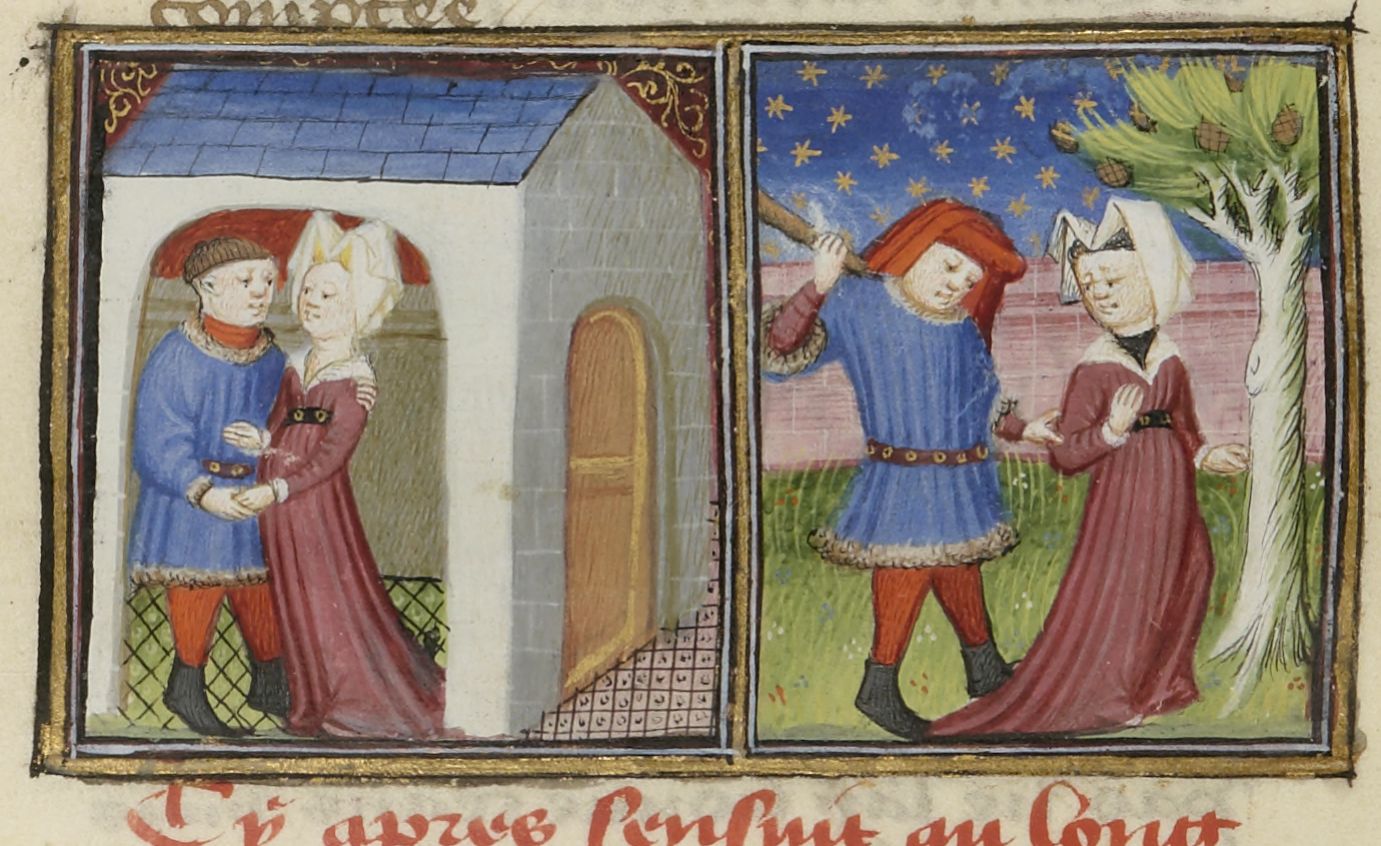 comptee
Cy apres sensuit au long